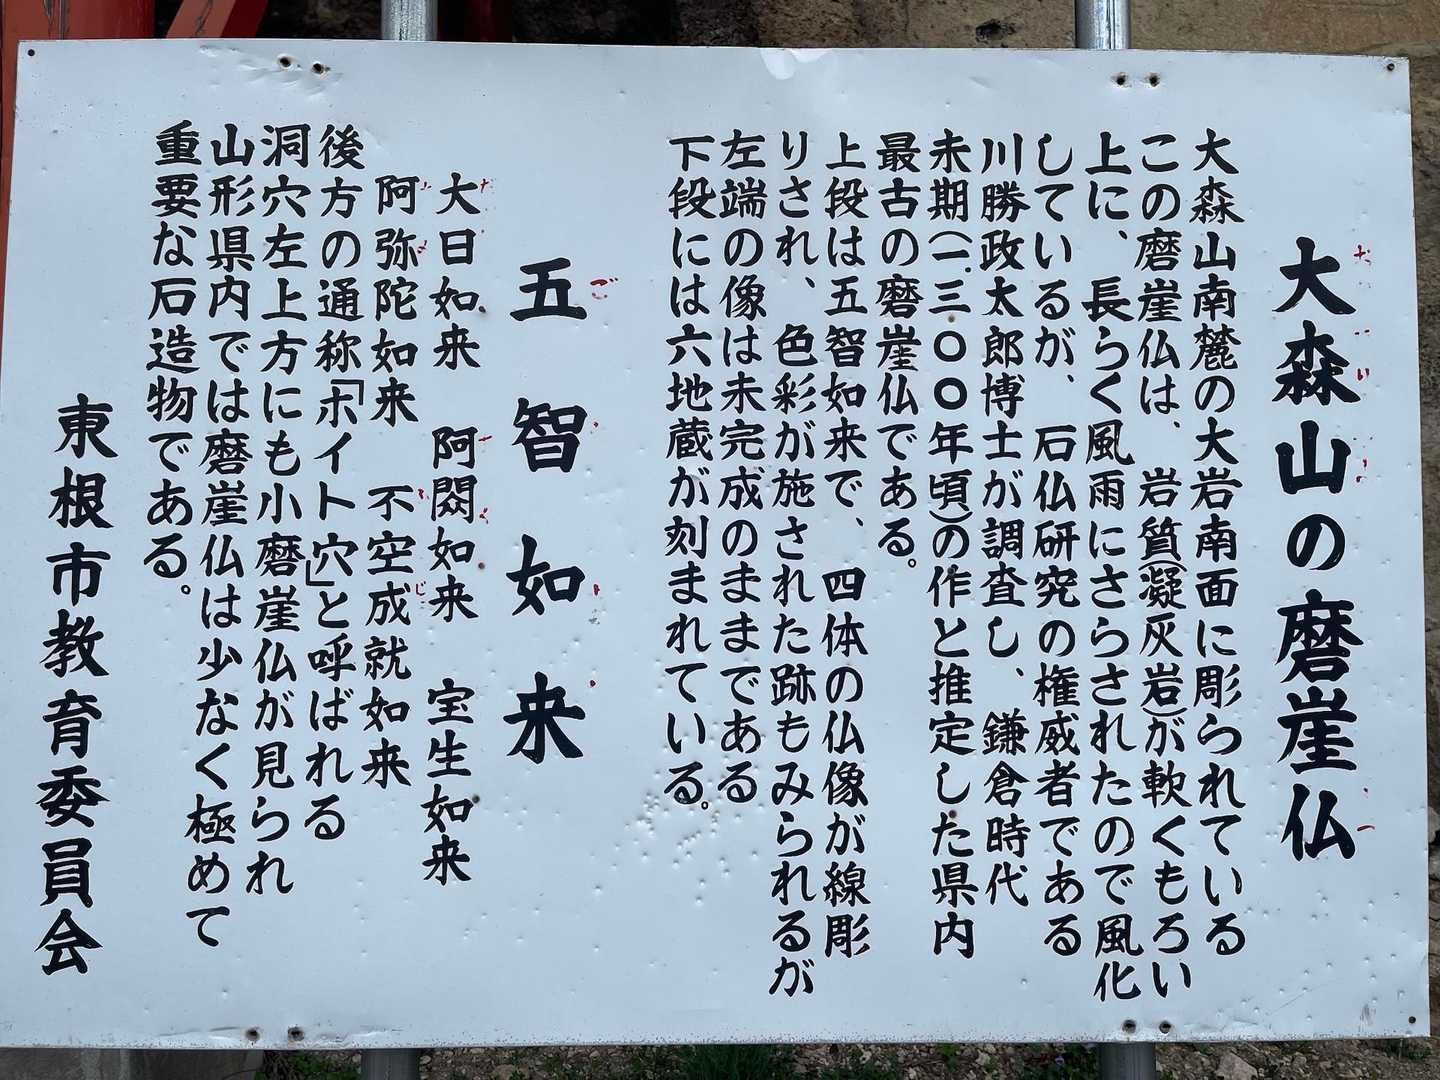 大森山の磨崖仏
大森山南麓の大岩南面に彫られている
この磨崖仏は、岩質(凝灰岩)が軟くもろい
上に、長らく風雨にさらされたので風化
しているが、石仏研究の権威者である
川勝政太郎博士が調査し、鎌倉時代
末期(一三〇〇年頃)の作と推定した県内
最古の磨崖仏である。
上段は五智如来で、四体の仏像が線彫
りされ、色彩が施された跡もみられるが
左端の像は未完成のままである
下段には六地蔵が刻まれている。
五智如来
大日如来 阿閦如来 宝生如来
阿弥陀如来 不空成就如来
後方の通称「ホイト穴」と呼ばれる
洞穴左上方にも小磨崖仏が見られ
山形県内では磨崖仏は少なく極めて
重要な石造物である。
東根市教育委員会